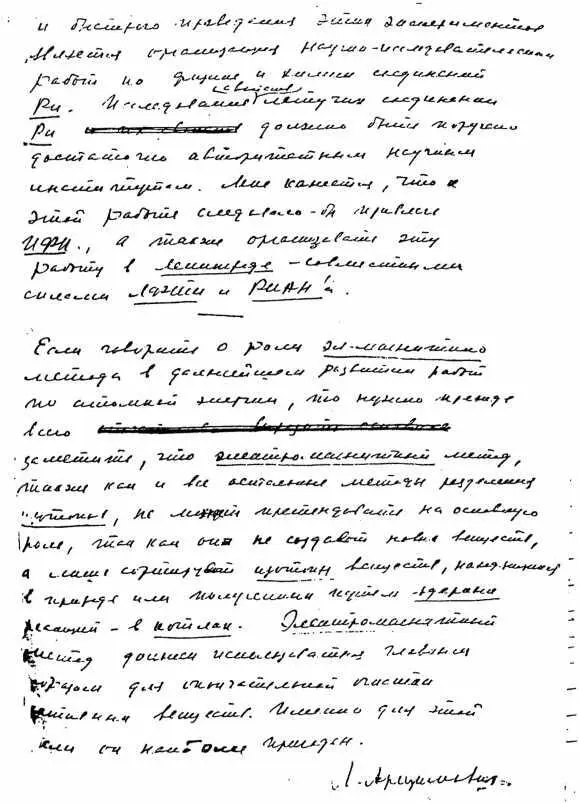 и быстрого проведения этих экспериментов
является организация научно-исследовательских
работ по физике и химии соединений
Pu. Исследование свойств летучих соединений
Pu должно быть поручено
достаточно авторитетным научным
институтам. Мне кажется, что к
этой работе следовало-бы привлечь
ИФП, а также организовать эту
работу в Ленинграде - совместными
силами ЛФТИ и РИАН'а.
Если говорить о роли эл-магнитного
метода в дальнейшем развитии работ
по атомной энергии, то нужно прежде
всего
заметить, что электро-магнитный метод,
также как и все остальные методы разделения
изотопов, не может претендовать на основную
роль, так как он не создает новых веществ,
а лишь сортирует изотопы веществ, находящихся
в природе или полученных путем ядерных
реакций - в котлах. Электромагнитный
метод должен использоваться главным
образом для окончательной очистки
активных веществ. Именно для этой
цели он наиболее пригоден.
Л. Арцимович